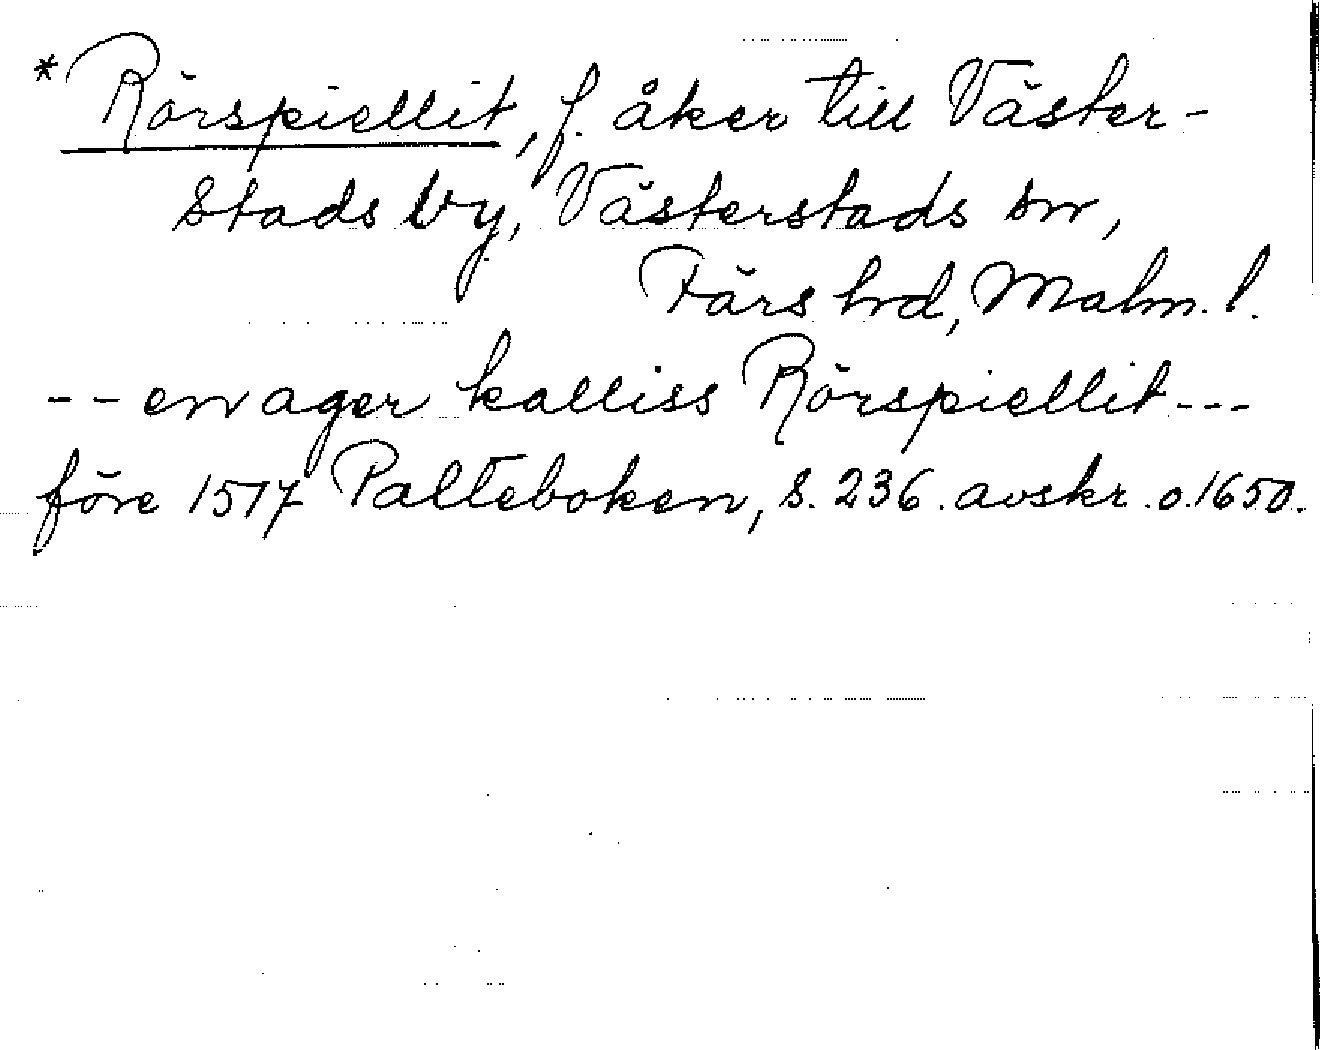 *Rörspiellit, f. åker till Väster-
stads by, Västerstads sn,
Färs hd, Malm. l.
-- en ager kalliss Rörspiellit---
före 1517 Palteboken, s. 236. avskr. o. 1650.